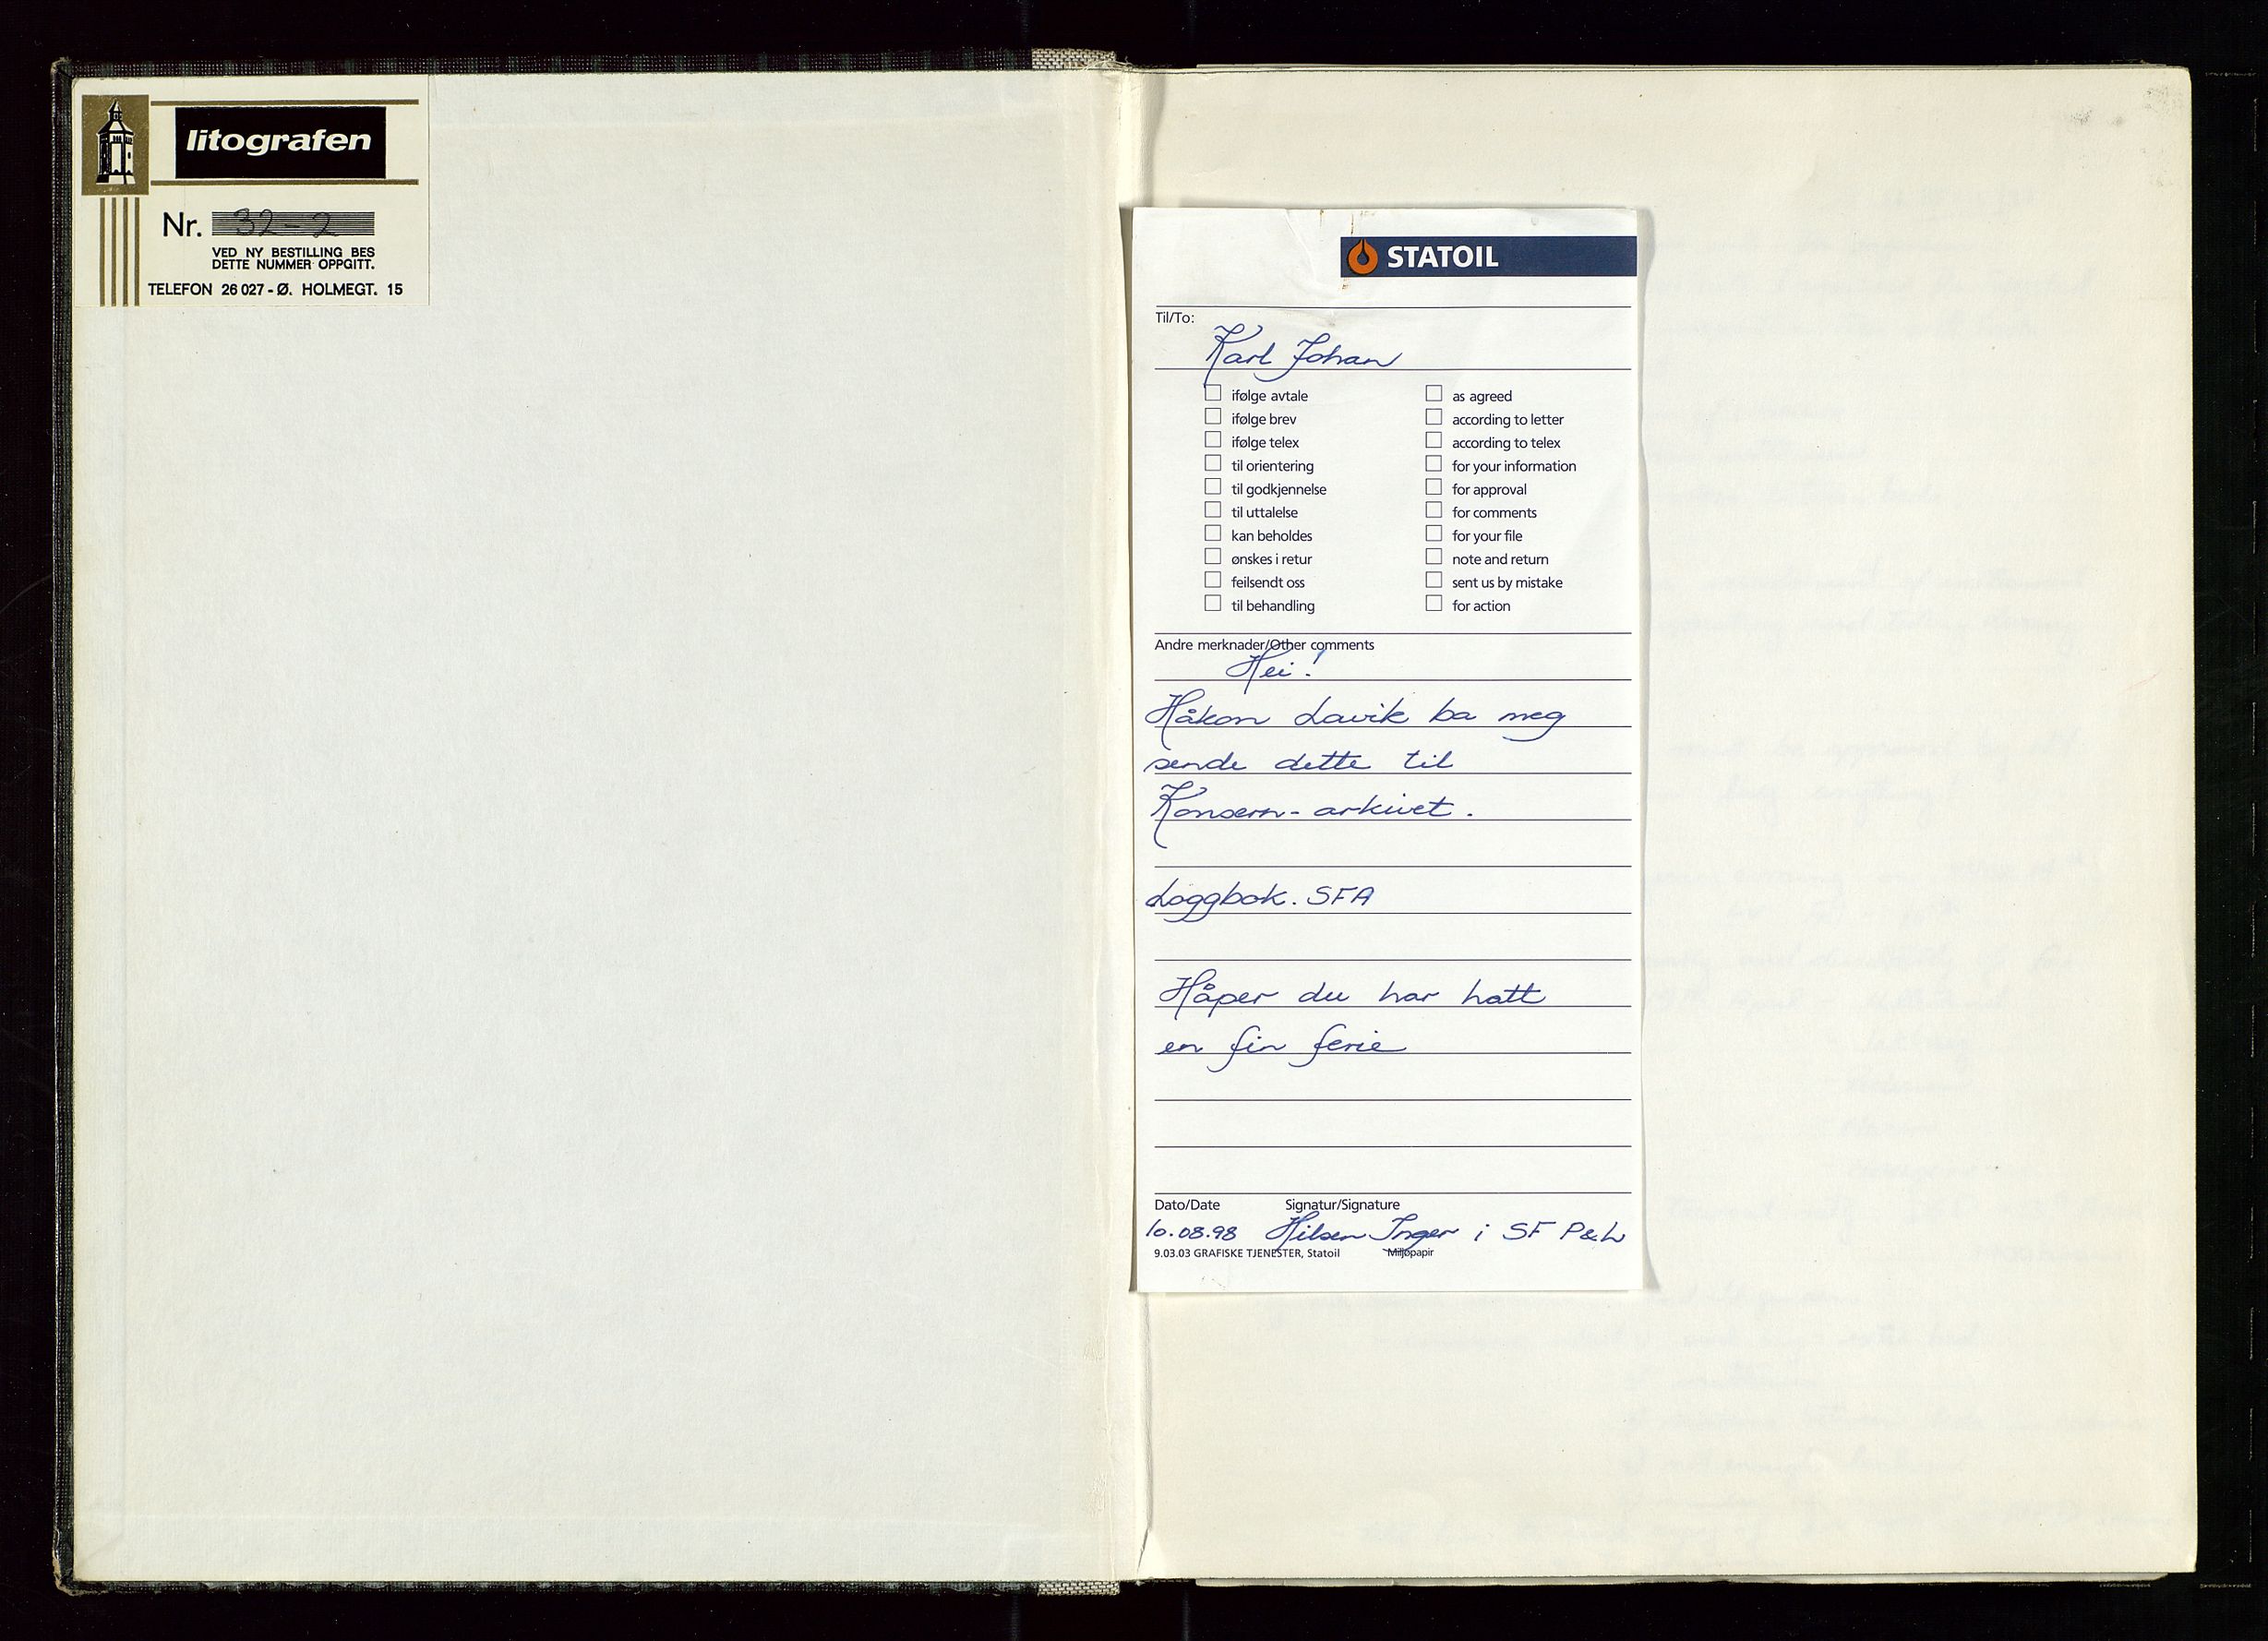 litografen
Nr. 32-2
VED NY BESTILLING BES
DETTE NUMMER OPPGITT.
TELEFON 26 027 - Ø. HOLMEGT. 15
STATOIL
Til/To:
Karl Johan
ifølge avtale
ifølge brev
ifølge telex
til orientering
til godkjennelse
til uttalelse
kan beholdes
ønskes i retur
feilsendt oss
til behandling
as agreed
according to letter
according to telex
for your information
for approval
for comments
for your file
note and return
sent us by mistake
for action
Andre merknader/Other comments
Hei!
Håkon Lavik ba meg
sende dette til
Konsern-arkivet.
Loggbok. SFA
Håper du har hatt
en fin ferie
Dato/Date Signatur/Signature
10.08.98 Hilsen Inger i SF P&L
9.03.03 GRAFISKE TJENESTER, Statoil Miljøpapir